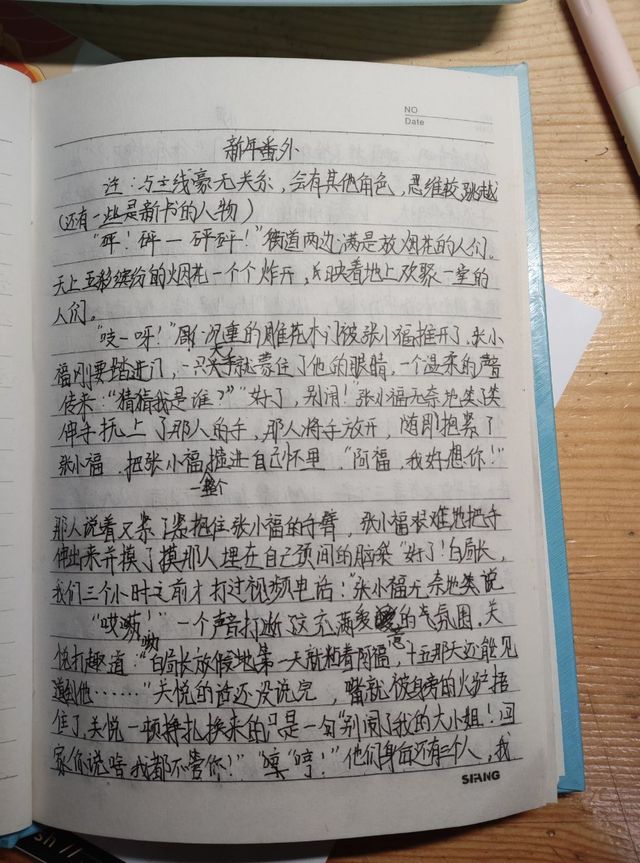 NO
Date
新年番外
注：与主线豪无关系，会有其他角色，思维较跳越
（还有一些是新书的人物）
“砰！砰一砰砰！”街道两边满是放烟花的人们。
天上五彩缤纷的烟花一个个炸开，映着地上欢聚一堂的
人们。
“吱一呀！”沉重的雕花木门被张小福推开了，张小
福刚要踏进门，一只大手就蒙住了他的眼睛，一个温柔的声音
传来：“猜猜我是谁？”“好了，别闹！”张小福无奈地笑笑
伸手抚上了那人的手，那人将手放开，随即抱紧了
张小福，把张小福一整个搂进自己怀里，“阿福，我好想你！”
那人说着又紧了紧抱住张小福的手臂，张小福艰难地把手
伸出来并摸了摸那人埋在自己颈间的脑袋“好了！白局长，
我们三个小时之前才打过视频电话！”张小福无奈地笑说
“哎呦呦！”一个声音打断了这充满爱意的气氛围，关
悦打趣道：“白局长放假地第一天就粘着阿福，十五那天还能见
道到他……”关悦的话还没说完，嘴就被身旁的火炉捂
住了，关悦一顿挣扎换来的只是一句“别闹了我的大小姐！回
家你说啥我都不管你！”“哼哼！”他们身后还有三个人，我
SIANG